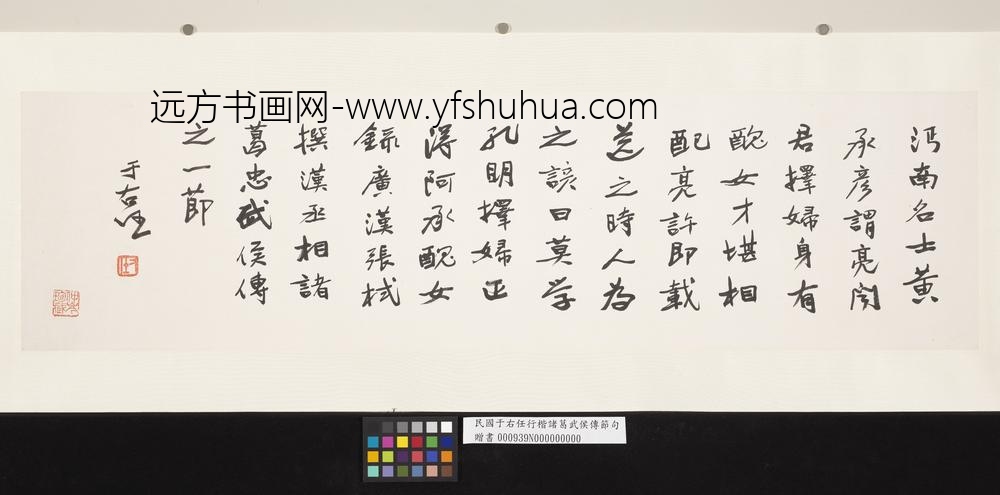 远方书画网-www.yfshuhua.com
沔南名士黄
承彦謂亮闻
君擇婦身有
醜女才堪相
配亮許即載
送之時人為
之諺曰莫学
孔明擇婦正
得阿承醜女
錄廣漢張栻
撰漢丞相諸
葛忠武侯傳
之一節
于右任
民國于右任行楷諸葛武侯傳節句
贈書 000939N000000000